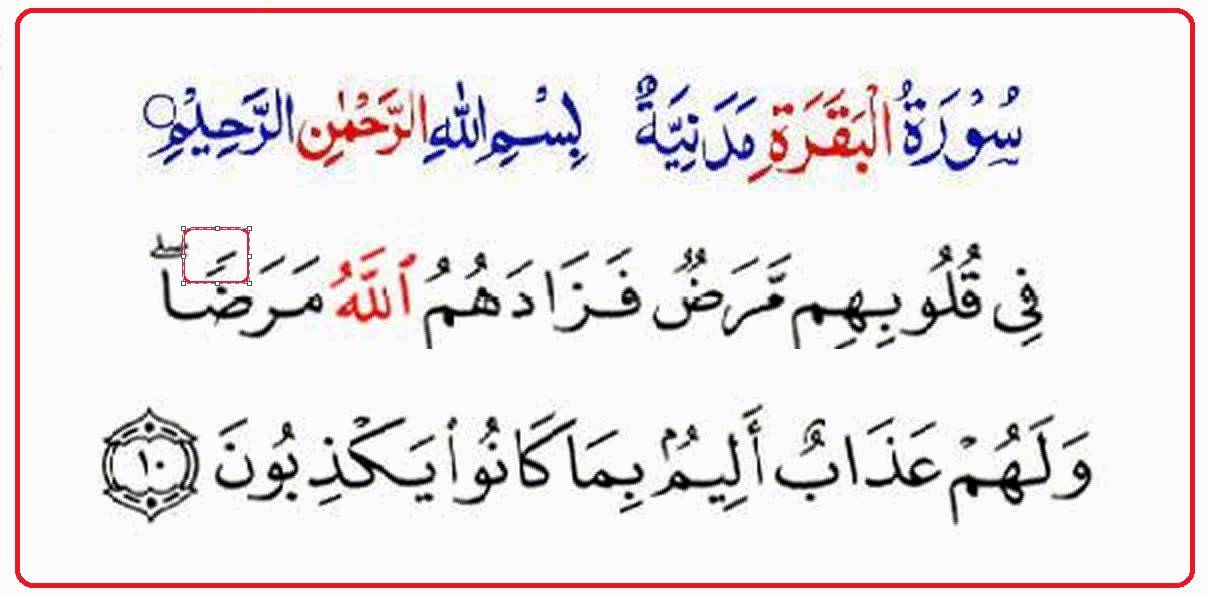 سُوْرَةُ الْبَقَرَةِ مَدَنِيَّةٌ بِسْمِ اللّٰهِ الرَّحْمٰنِ الرَّحِيْمِ
فِى قُلُوبِهِم مَّرَضٌ فَزَادَهُمُ ٱللَّهُ مَرَضَاۖ
وَلَهُمْ عَذَابٌ أَلِيمُۢ بِمَا كَانُوا۟ يَكْذِبُونَ ١٠